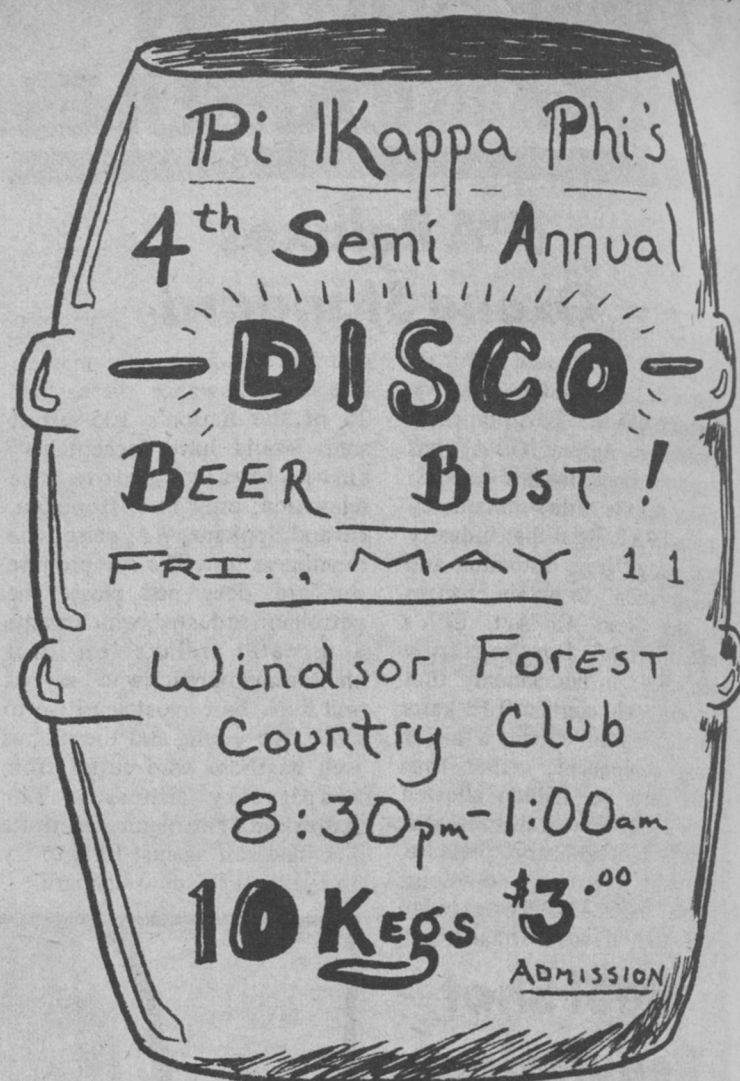 Pi Kappa Phi's
4th Semi Annual
DISCO
BEER BUST!
FRI., MAY 11
Windsor FOREST
Country Club
8:30pm-1:00am
10 KEgs $3.00
ADMISSION